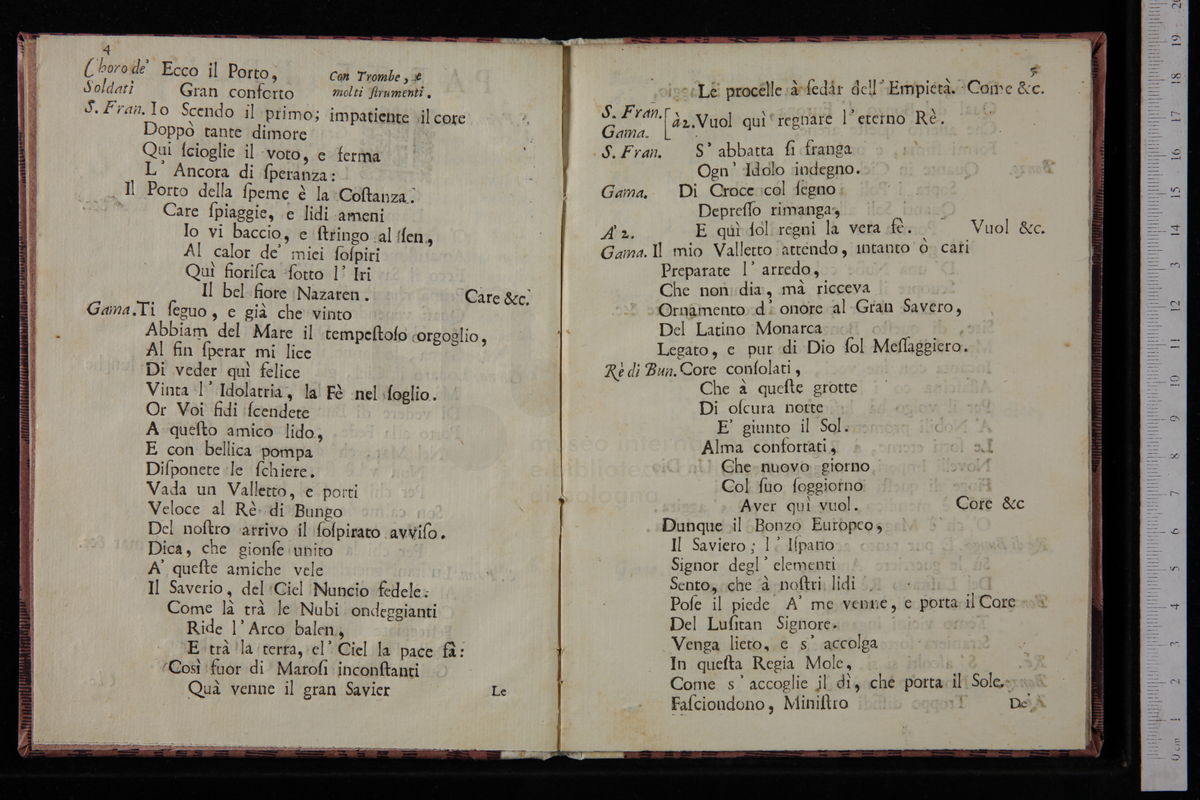 4
Choro de' Ecco il Porto, Con Trombe, e
Soldati Gran conforto molti ſtrumenti.
S. Fran. Io Scendo il primo; impatiente il core
Doppò tante dimore
Qui ſcioglie il voto, e ferma
L' Ancora di ſperanza:
Il Porto della ſpeme è la Coſtanza.
Care ſpiaggie, e lidi ameni
Io vi baccio, e ſtringo al ſen,
Al calor de' miei ſoſpiri
Quì fioriſca ſotto l' Iri
Il bel fiore Nazaren. Care &c.
Gama. Ti ſeguo, e già che vinto
Abbiam del Mare il tempeſtoſo orgoglio,
Al fin ſperar mi lice
Di veder quì felice
Vinta l' Idolatria, la Fè nel ſoglio.
Or Voi fidi ſcendete
A queſto amico lido,
E con bellica pompa
Diſponete le ſchiere.
Vada un Valletto, e porti
Veloce al Rè di Bungo
Del noſtro arrivo il ſoſpirato avviſo.
Dica, che gionſe unito
A' queſte amiche vele
Il Saverio, del Ciel Nuncio fedele.
Come là trà le Nubi ondeggianti
Ride l' Arco balen,
E trà la terra, el' Ciel la pace fà:
Così fuor di Maroſi inconſtanti
Quà venne il gran Savier Le
5
Le procelle à ſedàr dell' Empietà. Come &c.
S. Fran. [à2. Vuol quì regnare l' eterno Rè.
Gama.
S. Fran. S' abbatta ſi franga
Ogn' Idolo indegno.
Gama. Di Croce col ſegno
Depreſſo rimanga,
A' 2. E quì ſol regni la vera fè. Vuol &c.
Gama. Il mio Valletto attendo, intanto ò cari
Preparate l' arredo,
Che non dia, mà ricceva
Ornamento d' onore al Gran Savero,
Del Latino Monarca
Legato, e pur di Dio ſol Meſſaggiero.
Rè di Bun. Core conſolati,
Che à queſte grotte
Di oſcura notte
E' giunto il Sol.
Alma confortati,
Che nuovo giorno
Col ſuo ſoggiorno
Aver quì vuol. Core &c
Dunque il Bonzo Europeo,
Il Saviero; l' Iſpano
Signor degl' elementi
Sento, che à noſtri lidi
Poſe il piede A' me venne, e porta il Core
Del Luſitan Signore.
Venga lieto, e s' accolga
In queſta Regia Mole,
Come s' accoglie il dì, che porta il Sole.
Faſciondono, Miniſtro De'